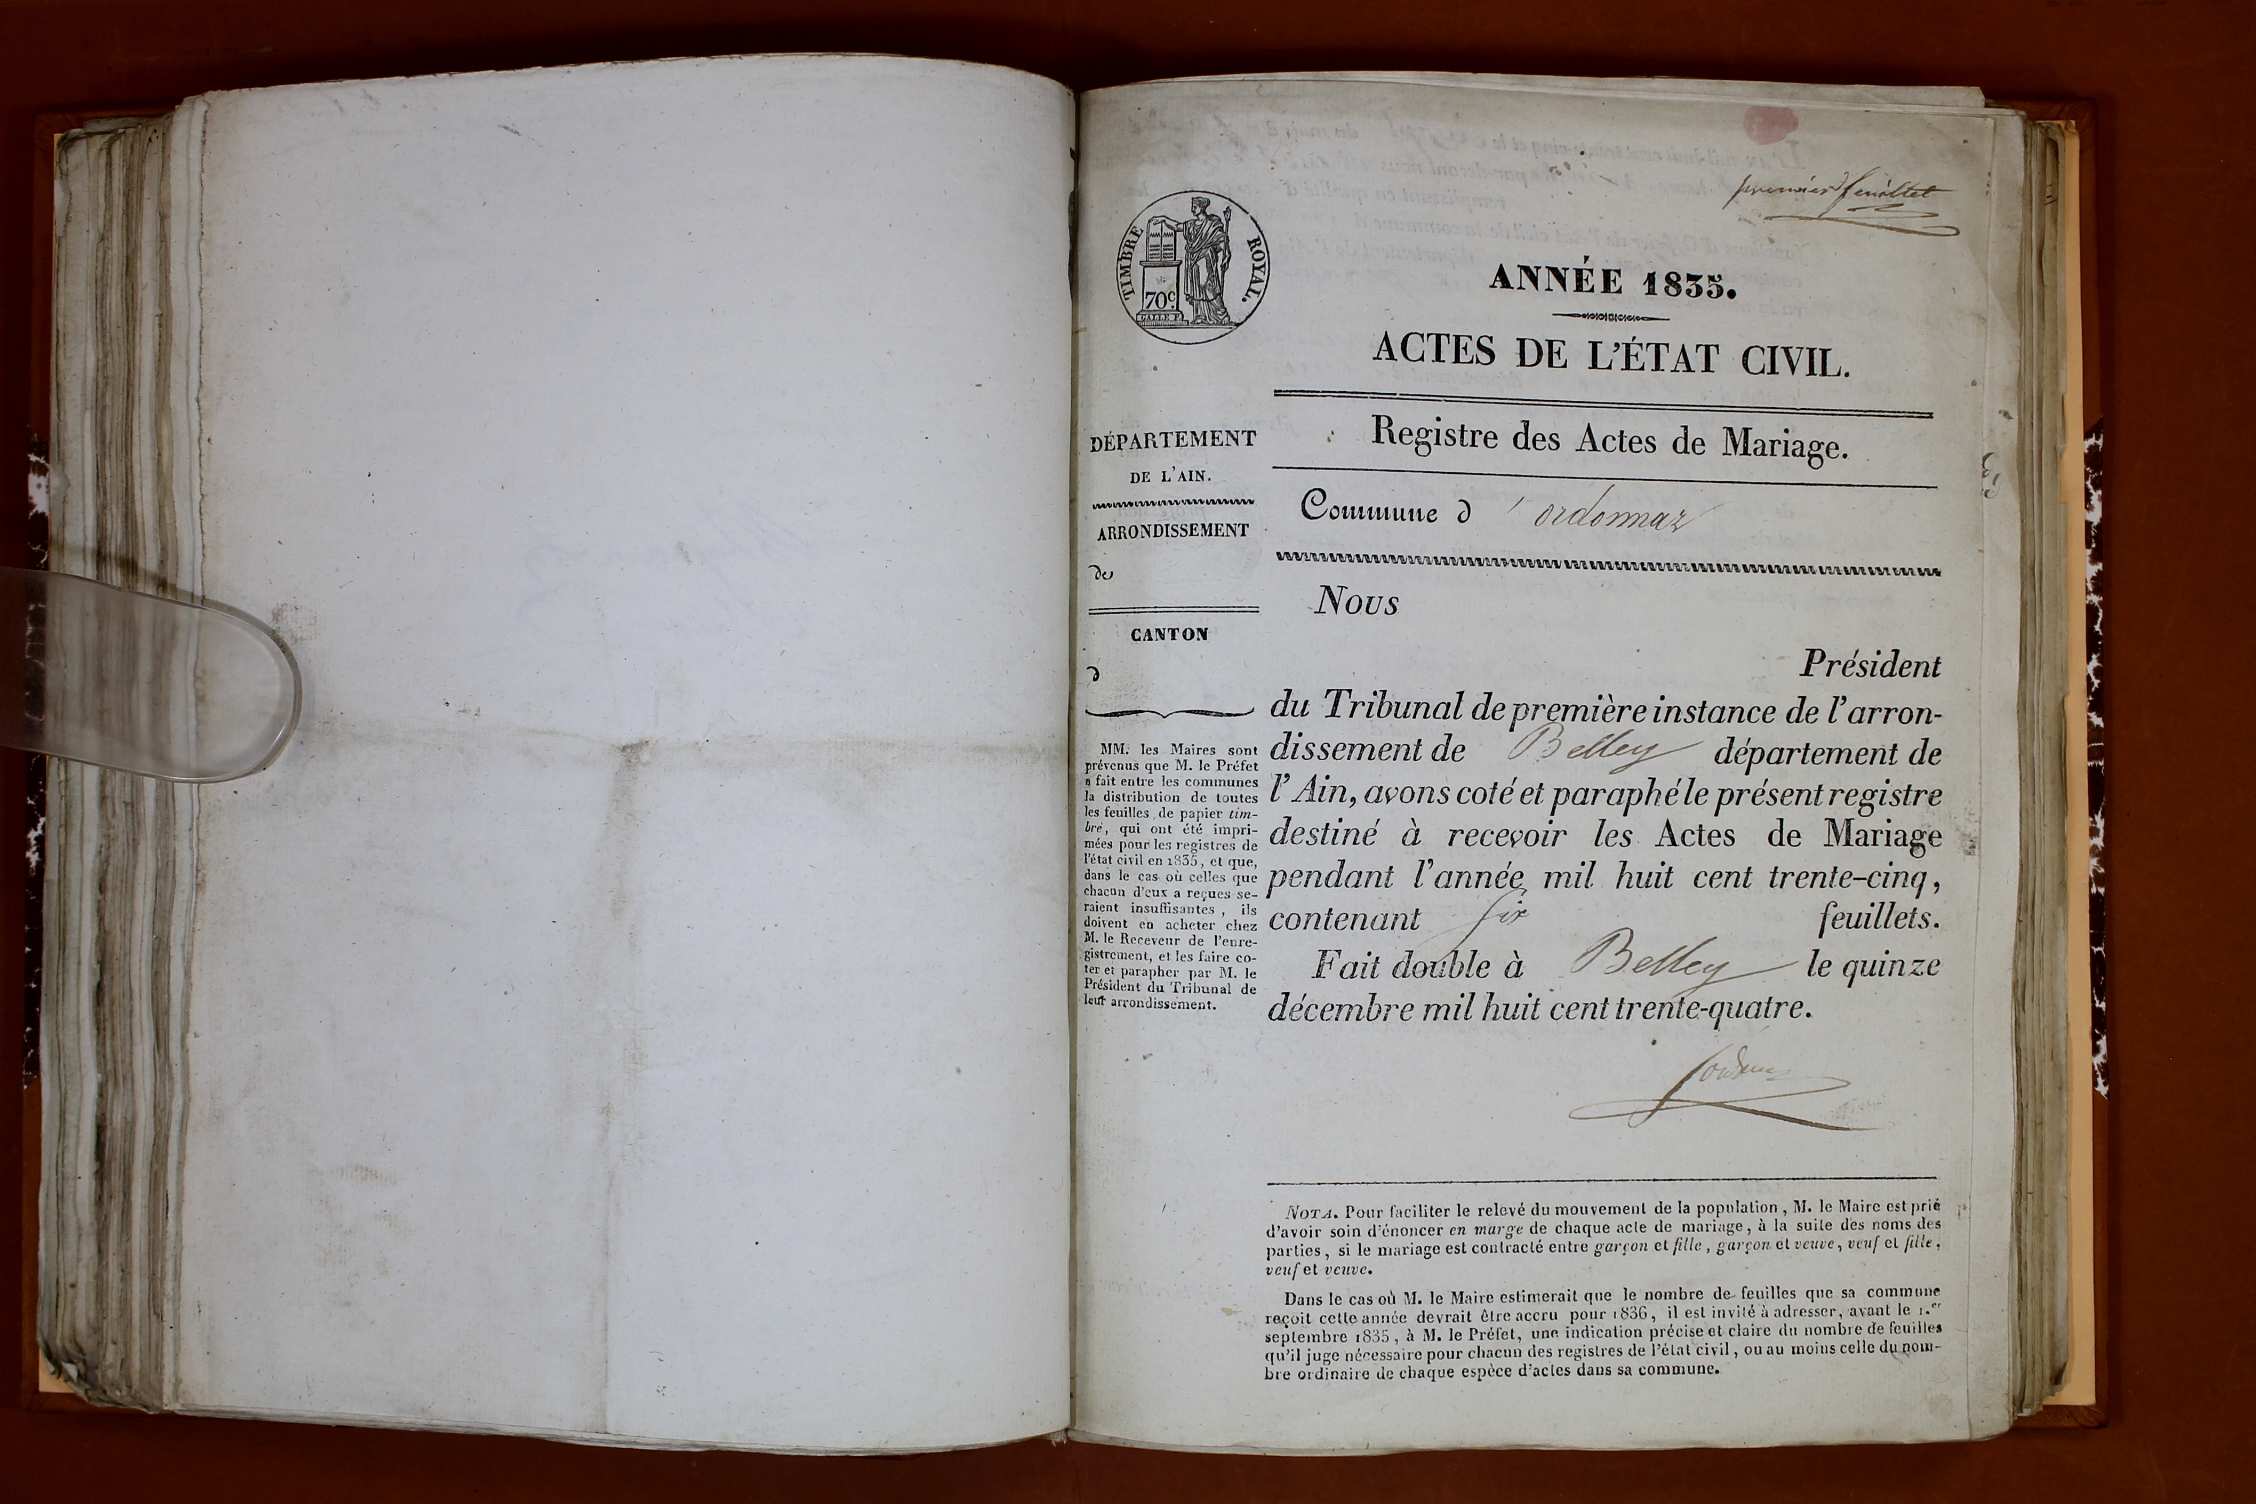 premier feuillet
TIMBRE ROYAL.
70c
ANNÉE 1835.
ACTES DE L'ÉTAT CIVIL.
DÉPARTEMENT
DE L'AIN.
ARRONDISSEMENT
de
CANTON
d
MM. les Maires sont
prévenus que M. le Préfet
a fait entre les communes
la distribution de toutes
les feuilles de papier tim-
bré, qui ont été impri-
mées pour les registres de
l'état civil en 1835, et que,
dans le cas où celles que
chacun d'eux a reçues se-
raient insuffisantes, ils
doivent en acheter chez
M. le Receveur de l'enre-
gistrement, et les faire co-
ter et parapher par M. le
Président du Tribunal de
leur arrondissement.
Registre des Actes de Mariage.
Commune d'ordonnaz
Nous
Président
du Tribunal de première instance de l'arron-
dissement de Belley département de
l'Ain, avons coté et paraphé le présent registre
destiné à recevoir les Actes de Mariage
pendant l'année mil huit cent trente-cinq,
contenant six feuillets.
Fait double à Belley le quinze
décembre mil huit cent trente-quatre.
NOTA. Pour faciliter le relevé du mouvement de la population, M. le Maire est prié
d'avoir soin d'énoncer en marge de chaque acte de mariage, à la suite des noms des
parties, si le mariage est contracté entre garçon et fille, garçon et veuve, veuf et fille,
veuf et veuve.
Dans le cas où M. le Maire estimerait que le nombre de feuilles que sa commune
reçoit cette année devrait être accru pour 1836, il est invité à adresser, avant le 1.er
septembre 1835, à M. le Préfet, une indication précise et claire du nombre de feuilles
qu'il juge nécessaire pour chacun des registres de l'état civil, ou au moins celle du nom-
bre ordinaire de chaque espèce d'actes dans sa commune.